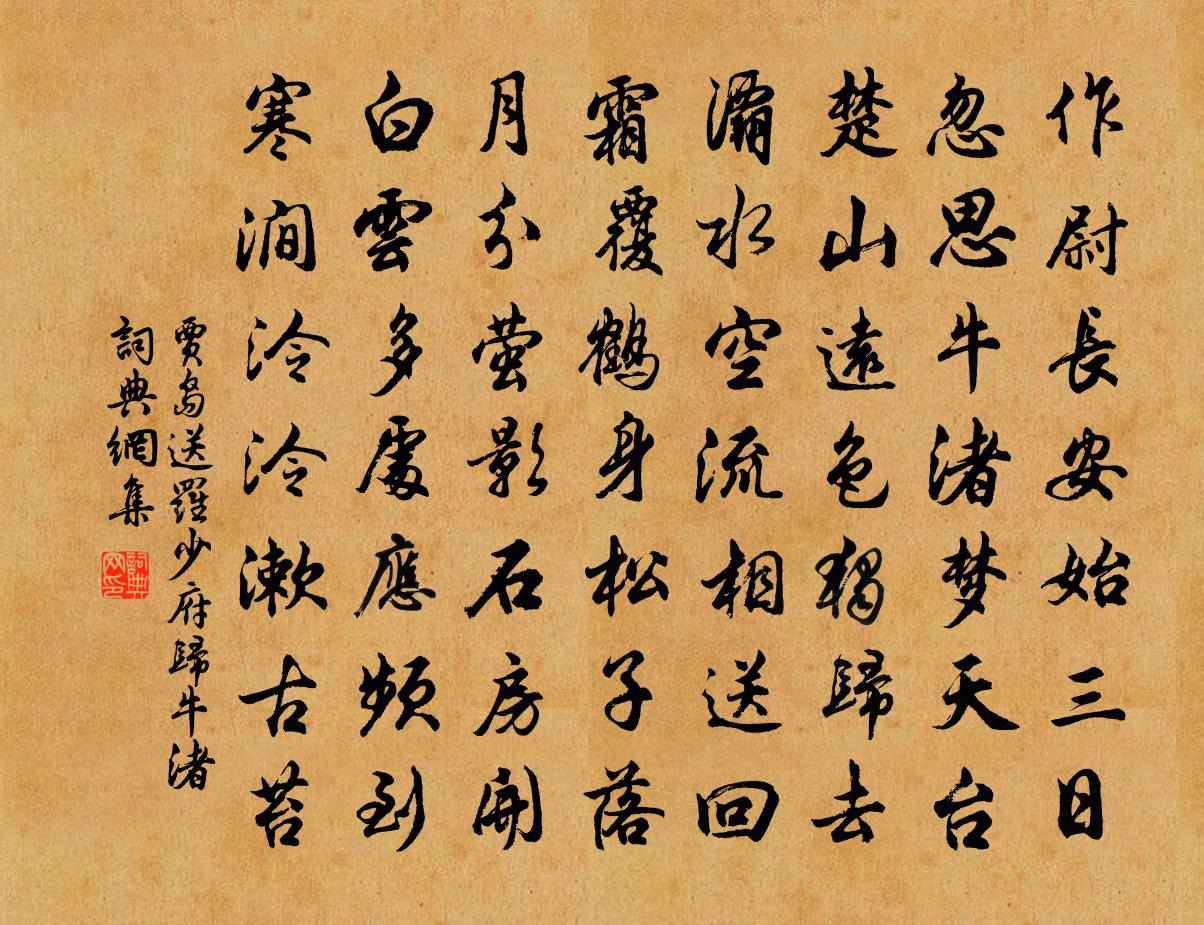 作尉長安始三日
忽思牛渚梦天台
楚山遠色獨歸去
灞水空流相送回
霜覆鶴身松子落
月分萤影石房開
白雲多處應頻到
寒澗泠泠漱古苔
賈島送羅少府歸牛渚
詞典網集
詞典
网印